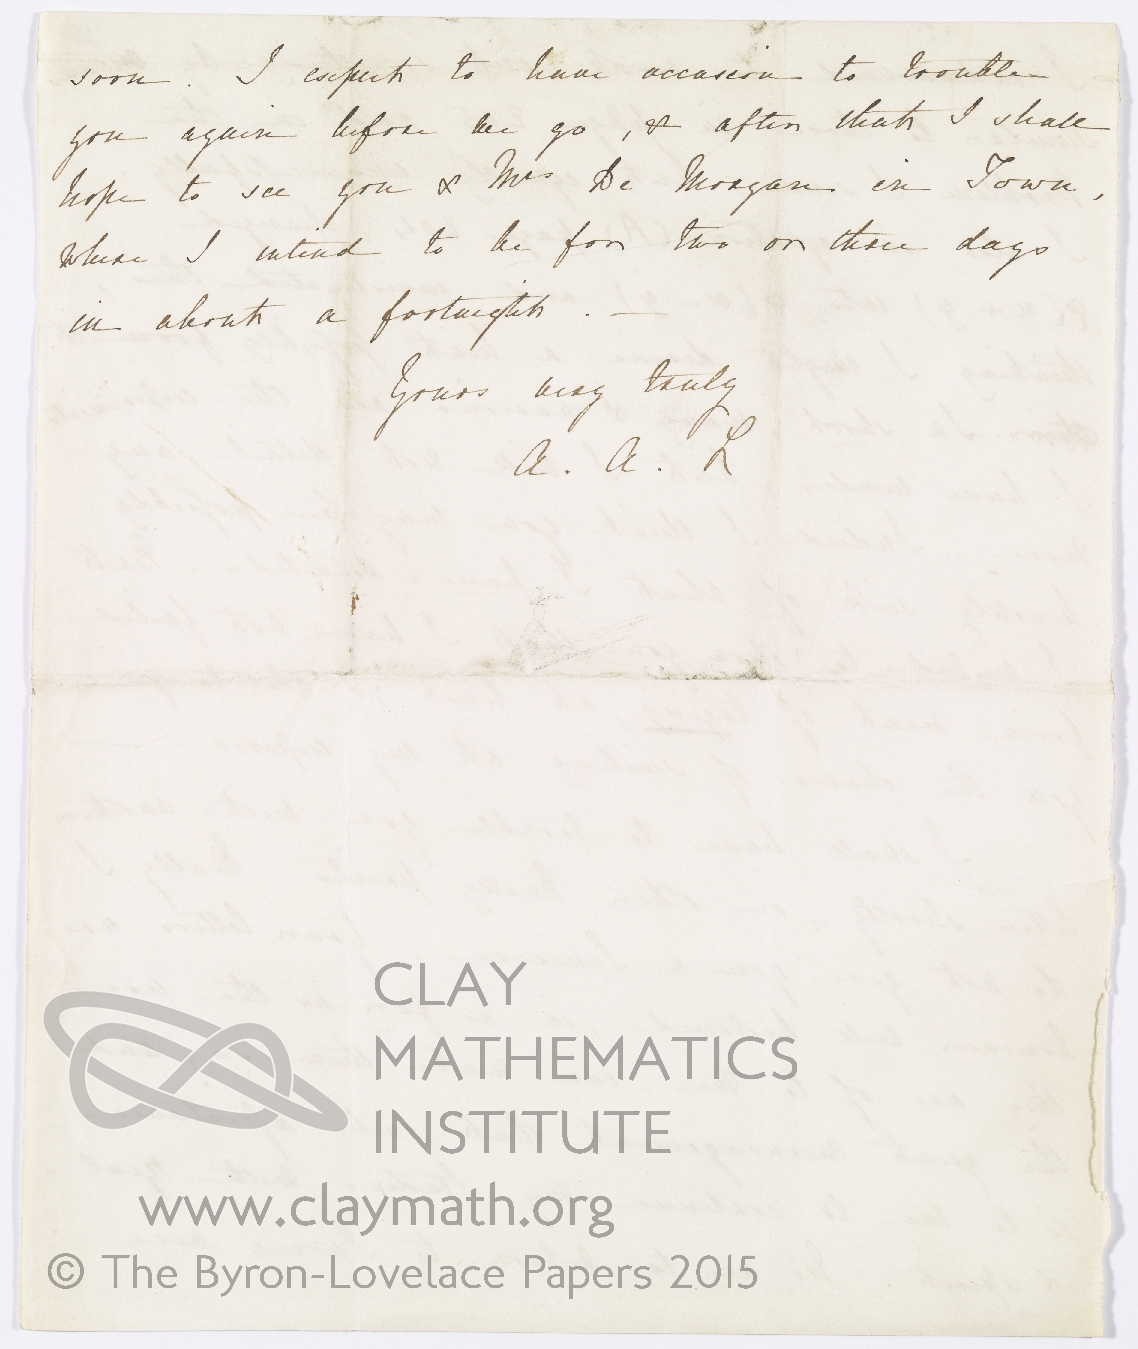 soon. I expect to have occasion to trouble
you again before we go, & after that I shall
hope to see you & Mrs De Morgan in Town,
where I intend to be for two or three days
in about a fortnight. —
Yours very truly
A. A. L
CLAY
MATHEMATICS
INSTITUTE
www.claymath.org
© The Byron-Lovelace Papers 2015